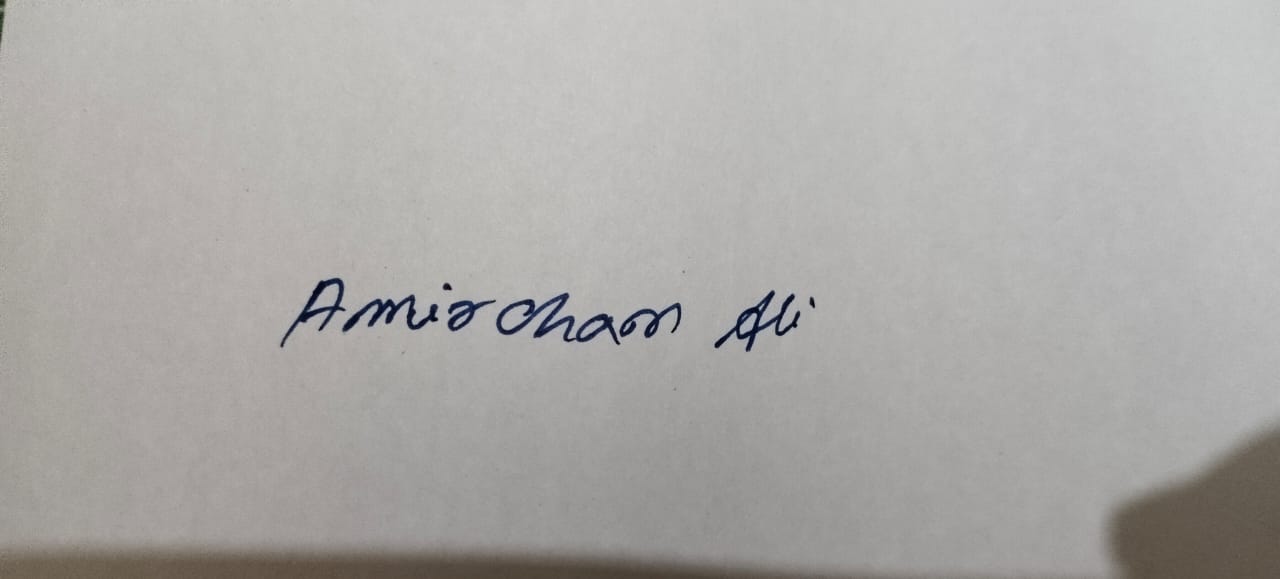 Amir cham Ali